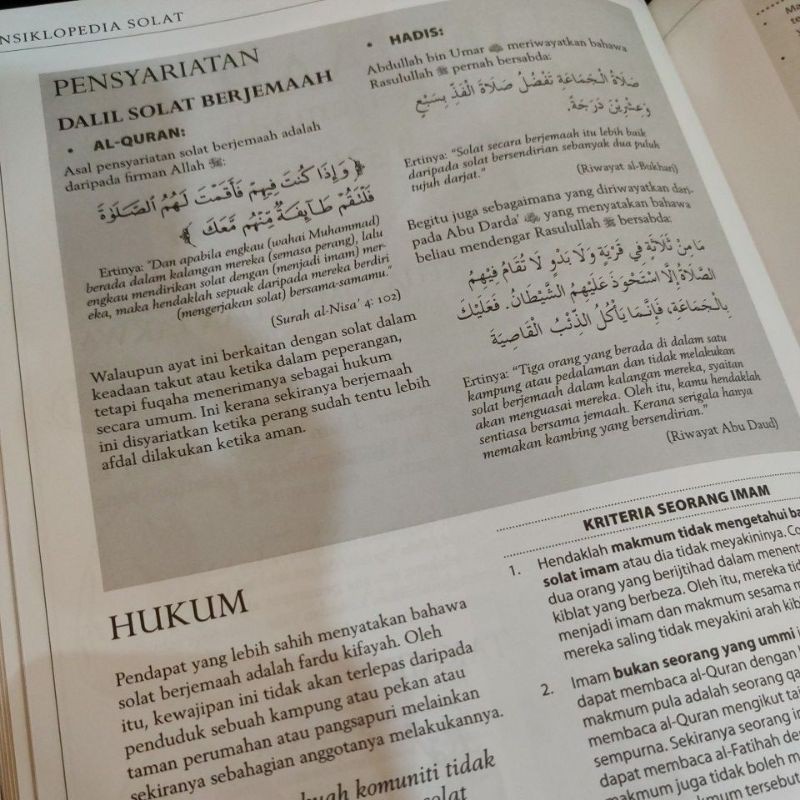 NSIKLOPEDIA SOLAT
PENSYARIATAN
DALIL SOLAT BERJEMAAH
• AL-QURAN:
Asal pensyariatan solat berjemaah adalah
daripada firman Allah ﷻ:
﴿ وَإِذَا كُنتَ فِيهِمْ فَأَقَمْتَ لَهُمُ ٱلصَّلَوٰةَ
فَلْتَقُمْ طَآئِفَةٌ مِّنْهُم مَّعَكَ ﴾
Ertinya: "Dan apabila engkau (wahai Muhammad)
berada dalam kalangan mereka (semasa perang), lalu
engkau mendirikan solat dengan (menjadi imam) mer-
eka, maka hendaklah sepuak daripada mereka berdiri
(mengerjakan solat) bersama-samamu."
(Surah al-Nisa' 4: 102)
Walaupun ayat ini berkaitan dengan solat dalam
keadaan takut atau ketika dalam peperangan,
tetapi fuqaha menerimanya sebagai hukum
secara umum. Ini kerana sekiranya berjemaah
ini disyariatkan ketika perang sudah tentu lebih
afdal dilakukan ketika aman.
• HADIS:
Abdullah bin Umar meriwayatkan bahawa
Rasulullah ﷺ pernah bersabda:
صَلَاةُ الْجَمَاعَةِ تَفْضُلُ صَلَاةَ الْفَذِّ بِسَبْعٍ
وَعِشْرِينَ دَرَجَةً.
Ertinya: "Solat secara berjemaah itu lebih baik
daripada solat bersendirian sebanyak dua puluh
tujuh darjat."
(Riwayat al-Bukhari)
Begitu juga sebagaimana yang diriwayatkan dari-
pada Abu Darda' yang menyatakan bahawa
beliau mendengar Rasulullah ﷺ bersabda:
مَا مِنْ ثَلَاثَةٍ فِي قَرْيَةٍ وَلَا بَدْوٍ لَا تُقَامُ فِيهِمُ
الصَّلَاةُ إِلَّا اسْتَحْوَذَ عَلَيْهِمُ الشَّيْطَانُ. فَعَلَيْكَ
بِالْجَمَاعَةِ، فَإِنَّمَا يَأْكُلُ الذِّئْبُ الْقَاصِيَةَ
Ertinya: "Tiga orang yang berada di dalam satu
kampung atau pedalaman dan tidak melakukan
solat berjemaah dalam kalangan mereka, syaitan
akan menguasai mereka. Oleh itu, kamu hendaklah
sentiasa bersama jemaah. Kerana serigala hanya
memakan kambing yang bersendirian."
(Riwayat Abu Daud)
HUKUM
Pendapat yang lebih sahih menyatakan bahawa
solat berjemaah adalah fardu kifayah. Oleh
itu, kewajipan ini tidak akan terlepas daripada
penduduk sebuah kampung atau pekan atau
taman perumahan atau pangsapuri melainkan
sekiranya sebahagian anggotanya melakukannya.
komuniti tidak
solat
KRITERIA SEORANG IMAM
1. Hendaklah makmum tidak mengetahui ba
solat imam atau dia tidak meyakininya. Co
dua orang yang berijtihad dalam menent
kiblat yang berbeza. Oleh itu, mereka tid
menjadi imam dan makmum sesama m
mereka saling tidak meyakini arah kib
2. Imam bukan seorang yang ummi
dapat membaca al-Quran dengan
makmum pula adalah seorang qa
membaca al-Quran mengikut ta
sempurna. Sekiranya seorang i
dapat membaca al-Fatihah de
makmum juga tidak boleh m
makmum tersebut